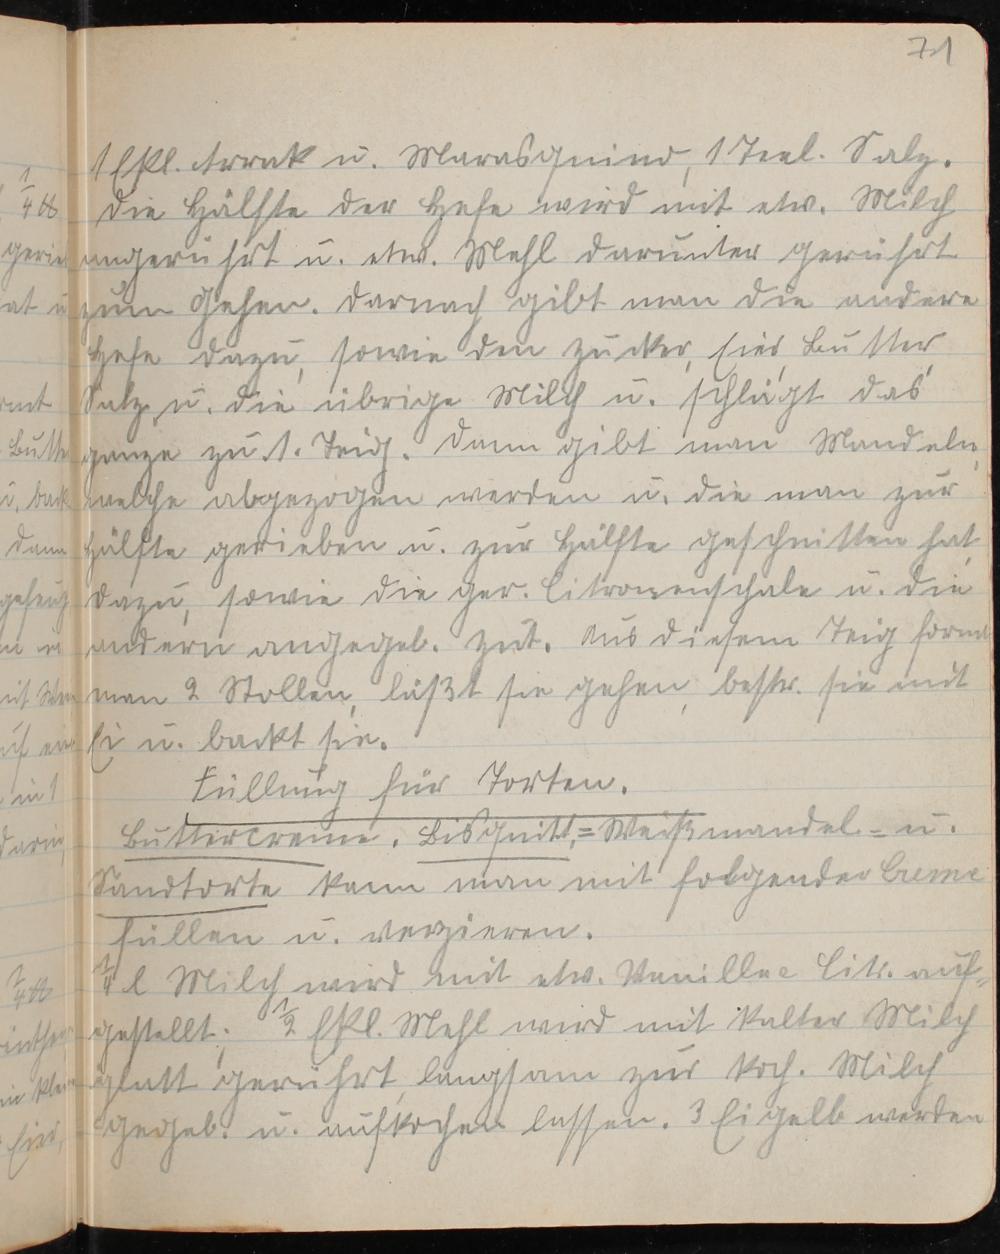 71
1 Eßl. Arrak u. Marasquino, 1 Teel. Salz.
Die Hälfte der Hefe wird mit etw. Milch
angerührt u. etw. Mehl darunter gerührt
zum Gehen. Darnach gibt man die andere
Hefe dazu, sowie den Zucker, Eier, Butter,
Salz, u. die übrige Milch u. schlägt das
ganze zu 1. Teig. Dann gibt man Mandeln,
welche abgezogen werden u. die man zur
Hälfte gerieben u. zur Hälfte geschnitten hat,
dazu, sowie die ger. Citronenschale u. die
andern angegeb. Zut. Aus diesem Teig formt
man 2 Stollen, läßt sie gehen, bestr. sie mit
Ei u. backt sie.
Füllung für Torten.
Buttercreme. Bisquit-, Weißmandel- u.
Sandtorte kann man mit folgender Creme
füllen u. verzieren.
1/4 l Milch wird mit etw. Vanille Citr. auf-
gestellt; 1/2 Eßl. Mehl wird mit kalter Milch
glatt gerührt, langsam zur koch. Milch
gegeb. u. aufkochen lassen. 3 Eigelb werden